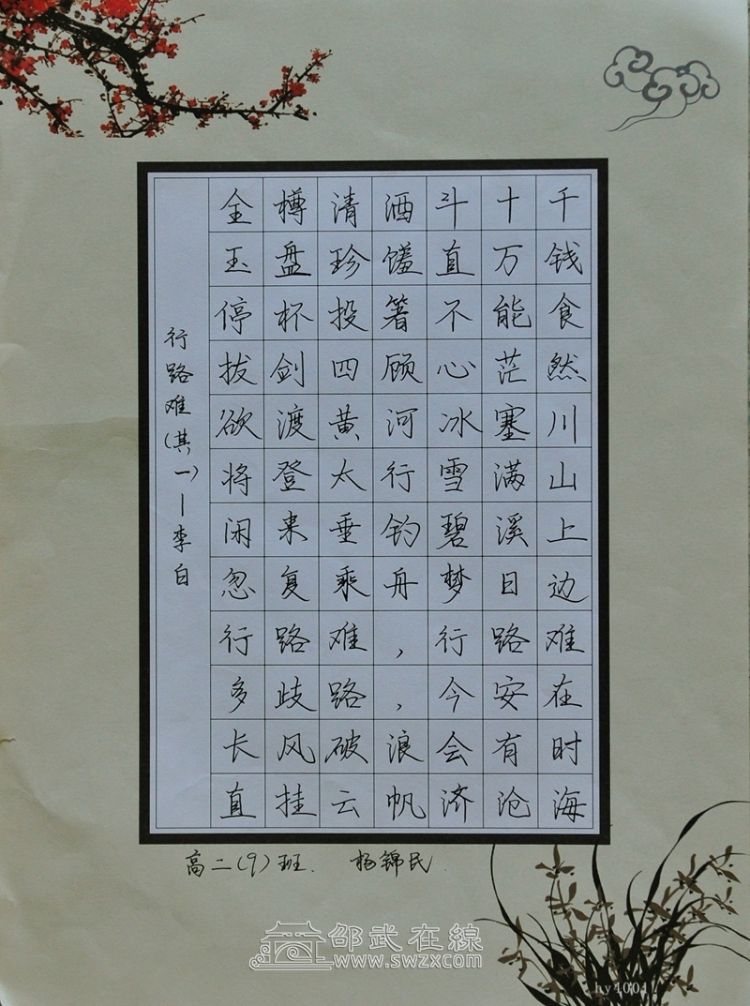 行路难(其一)—李白
金樽清酒斗十千
玉盘珍馐直万钱
停杯投箸不能食
拔剑四顾心茫然
欲渡黄河冰塞川
将登太行雪满山
闲来垂钓碧溪上
忽复乘舟梦日边
行路难，行路难
多歧路，今安在
长风破浪会有时
直挂云帆济沧海
高二(9)班. 杨锦民.
邵武在線
www.swzx.com